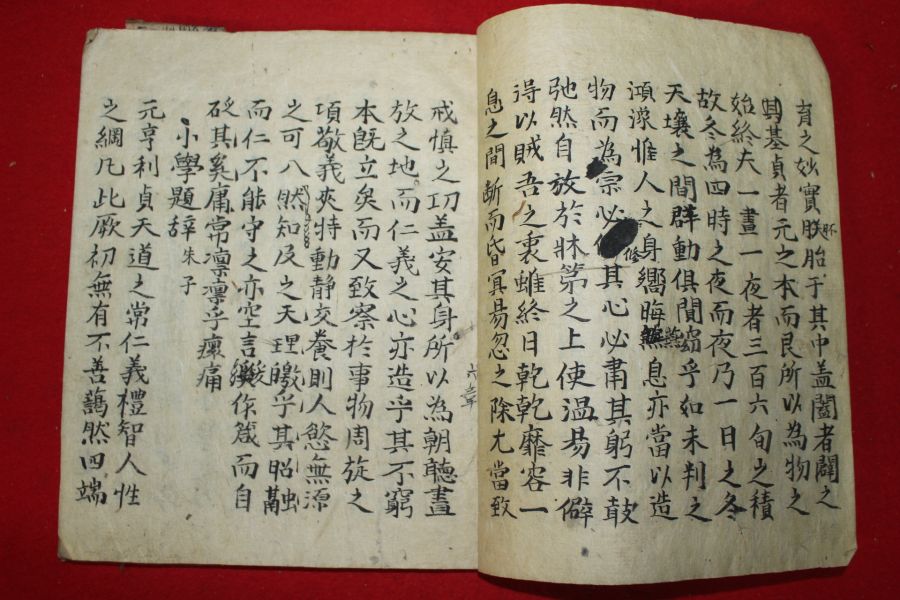 育之妙實朕胎于其中盖闔者闢之
其基貞者元之本而艮所以為物之
始終夫一畫一夜者三百六旬之積
故冬為四時之夜而夜乃一日之冬
天壤之間群動俱闃窈乎如未判之
澒濛惟人之身嚮晦燕息亦當以造
物而為宗必修其心必肅其躬不敢
弛然自放於牀第之上使温易非僻
得以賊吾之衷雖終日乾乾靡容一
息之間断而昏冥易忽之際尤當致
戒慎之功盖安其身所以為朝聽晝
放之地而仁義之心亦造乎其不窮
本旣立矣而又致察扵事物周旋之
項敬義夾持動靜交養則人慾無源
之可八然知及之天理皦乎其昭融
而仁不能守之亦空言爰作箴而自
砭其奚庸常凛凛乎瘝痛
小學題辞 朱子
元亨利貞天道之常仁義禮智人性
之綱凡此厥初無有不善藹然四端